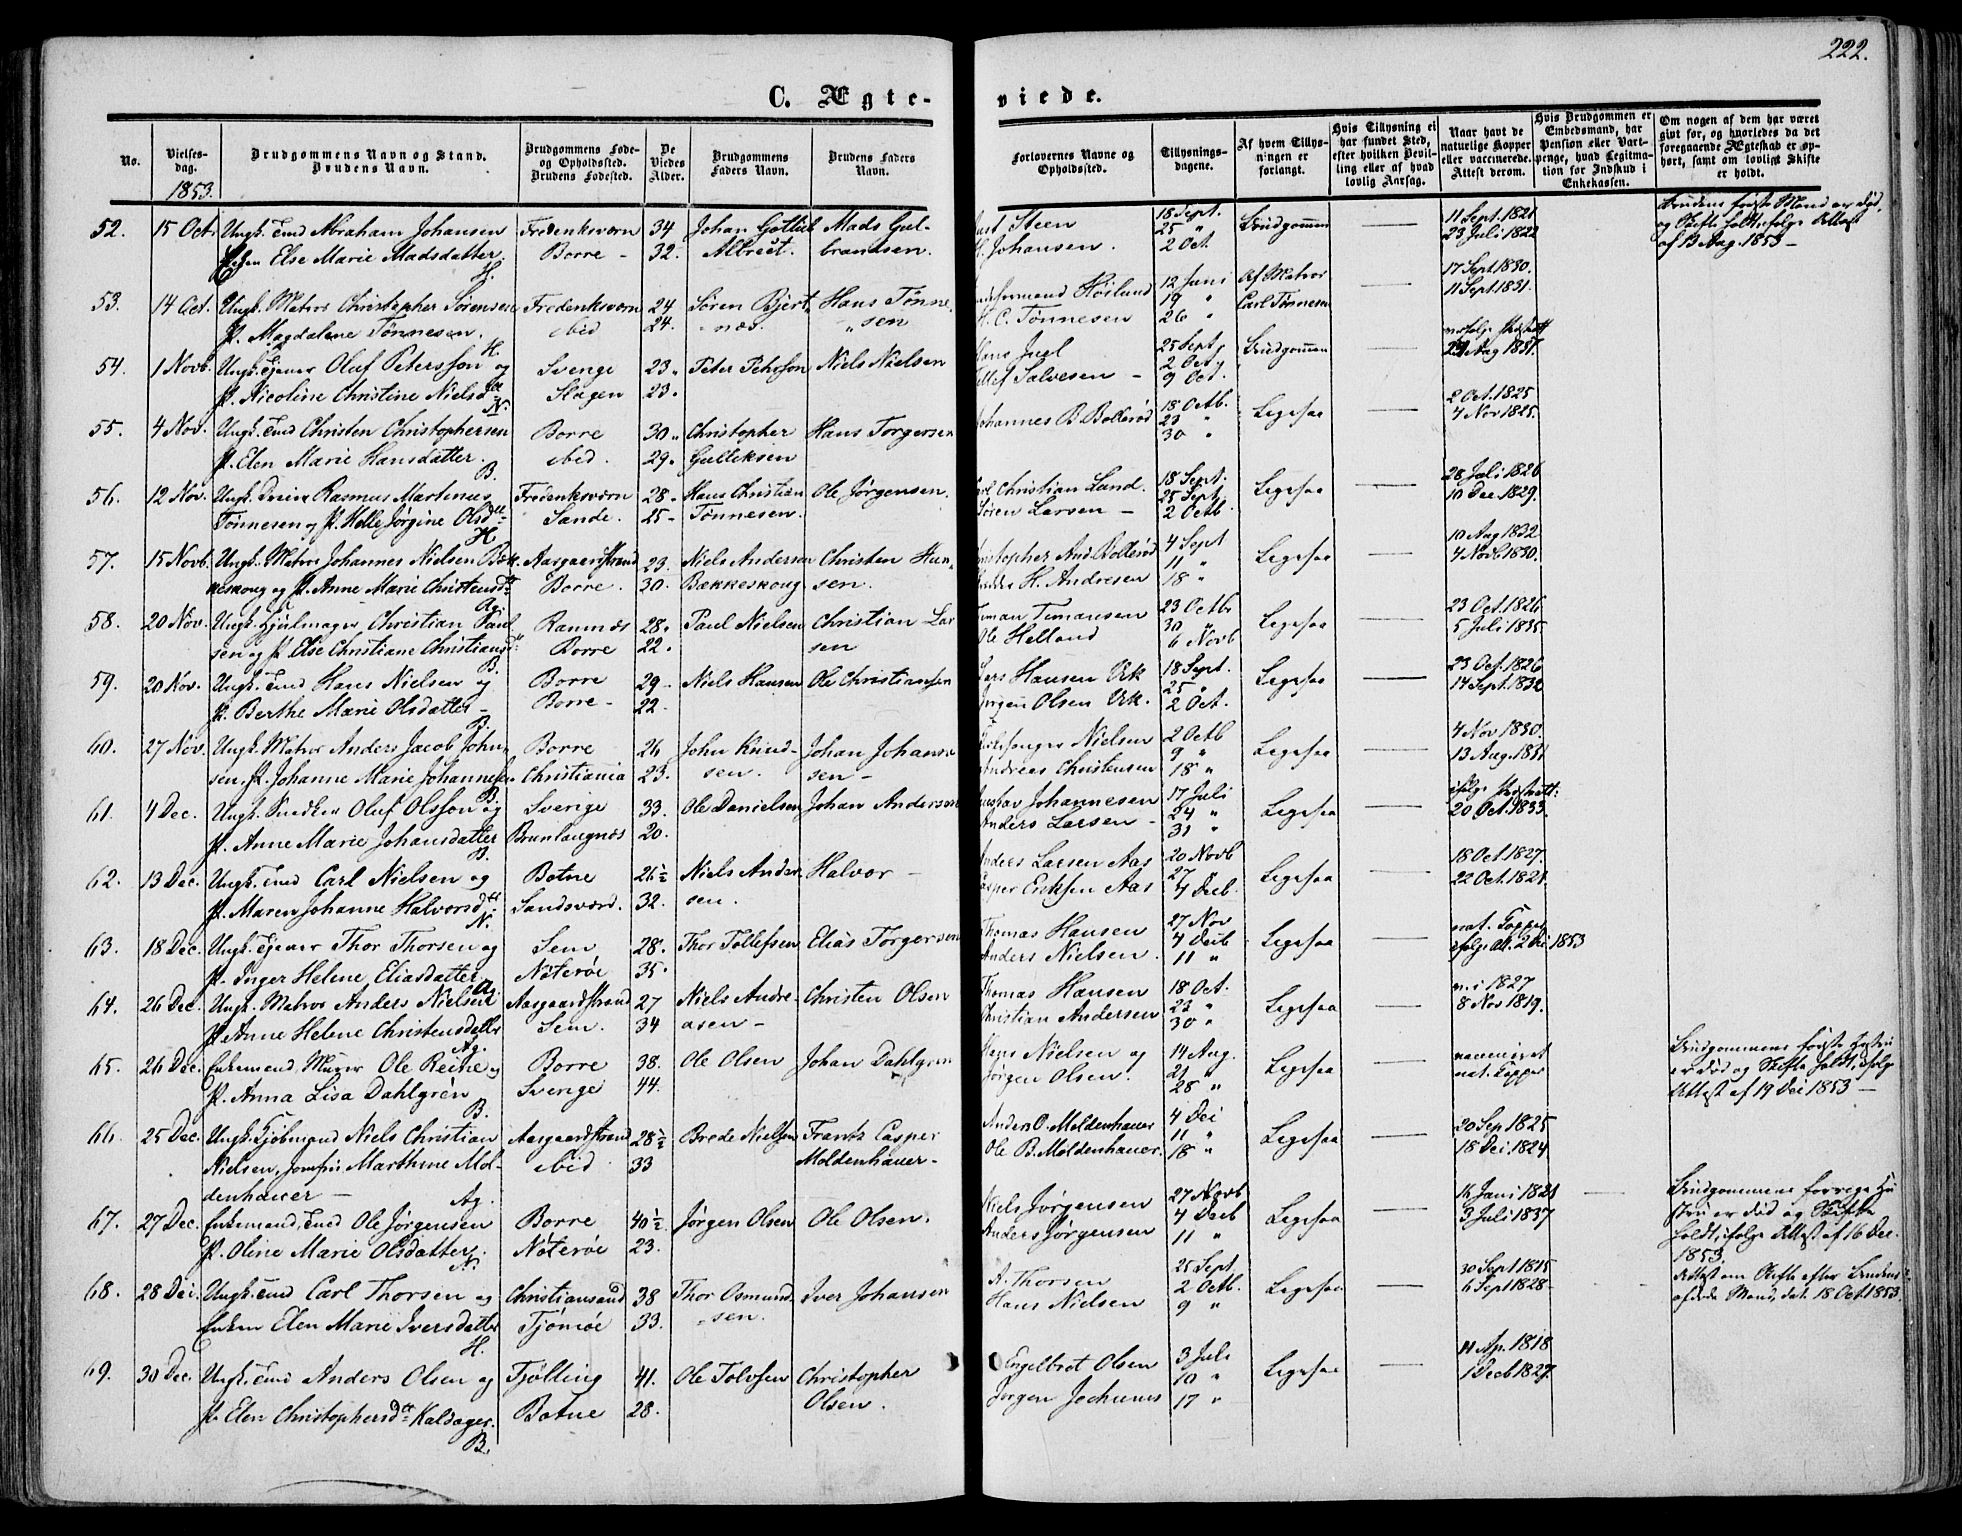 222.
C. Ægte-
viede.
No.
Vielses-
dag.
1853.
Brudgommens Navn og Stand.
Brudens Navn.
Brudgommens Føde-
og Opholdssted.
Brudens Fødested.
De
Viedes
Alder.
Brudgommens
Faders Navn.
Brudens Faders
Navn.
Forlovernes Navne og
Opholdssted.
Tillysnings-
dagene.
Af hvem Tillys-
ningen er
forlangt.
Hvis Tillysning ei
har fundet Sted,
efter hvilken Bevil-
ling eller af hvad
lovlig Aarsag.
Naar havt de
naturlige Kopper
eller vaccinerede.
Attest derom.
Hvis Brudgommen er
Embedsmand, har
Pension eller Vart-
penge, hvad Legitima-
tion for Indskud i
Enkekassen.
Om nogen af dem har været
givt før, og hvorledes da det
foregaaende Ægteskab er op-
hørt, samt om lovligt Skifte
er holdt.
52. 15 Oct. Ungk. Abraham Johansen Frederiksværn 34 Johan Gottlieb Mads Gul- Steen 18 Sept. Brudgommen 11 Sept. 1821 Brudens første Mand er død,
Else Marie Madsdatter. Borre - 32. Albrect. brandsen. Johansen. 25 " 23 Juli 1822 og Skifte holdt, ifølge Attest
H. 2 Oct af 13 Aug. 1853 -
53. 14 Oct. Ungk. Matros Christopher Sørensen Frederiksværn 24 Søren Bjert- Hans Tønne- Høilund 12 Juni Af Matros 17 Sept 1830.
P. Magdalene Tønnesen. ibid 24. næs. sen H. C. Tønnesen 19 " Carl Tønnesen 11 Sept. 1831.
H. 26 "
54. 1 Novb. Ungk. Tjener Olaf Petersson og Sverige 23. Peter Peterson Niels Nielsen Hans Juel 25 Sept. Brudgommen ifølge
P. Nicoline Christine Nielsd. Slagen 23. Salvesen - 2 Oct. Aug 1831.
N. 9 Oct.
55. 4 Nov. Ungk. Christen Christophersen Borre 30 Christopher Hans Torgersen Johannes B. Bollerød 18 Octb. Begge 2 Oct. 1825
P. Elen Marie Hansdatter. ibid. 29. Gulliksen 23 " 4 Nov 1825.
B. 30 "
56. 12 Nov. Ungk. Rasmus Martinus Frederiksværn 28 Hans Christian Ole Jørgensen. Christian Lund. 18 Sept. Begge 28 Juli 1826
Tønnesen og P. Helle Jørgine Olsd. Sande. 25 - Tønnesen. Søren Larsen - 25 Sept 10 Dec. 1829.
H. 2 Octb.
57. 15 Novb. Ungk. Matros Johannes Nielsen Bæk- Aasgaardstrand 23. Niels Andersen Christen Han- Christopher And. Bollerød 4 Sept Begge 10 Aug 1832
keskoug og P. Anne Marie Christensd. Borre. 30. Bækkeskoug sen. H. Andresen 11 " 4 Novb. 1830.
Ag. 18 "
58. 20 Nov. Ungk. Hjulmager Christian Paul- Ramnæs 28. Paul Nielsen Christian Lar- Timan Timansen 23 Octbr Begge 23 Oct. 1826
sen og P. Else Christiane Christiansd. Borre 22. sen Ole Helland 30 5 Juli 1835
B. 6 Novb
59. 20 Nov. Ungk. Hans Nielsen og Borre 29 - Niels Hansen Ole Christiansen Hansen Vik 18 Sept. Begge 23 Oct. 1826
P. Berthe Marie Olsdatter - Borre - 22. Jørgen Olsen Vik. 25 " 14 Sept. 1832
B. 2 Oct.
60. 27 Nov. Ungk. Matros Anders Jacob John- Borre 26 John Knud- Johan Johan- Nielsen 2 Octb Begge 4 Nov 1830.
sen. P. Johanne Marie Johannesen Christiania 23. sen. sen - Andreas Christensen 9 " 13 Aug. 1831
B. 18 "
61. 4 Dec. Ungk. Snedker Oluf Olsson og Sverige 33. Ole Danielsen Johan Andersen Gustav Johannesen 17 Juli Begge ifølge
P. Anne Marie Johansdatter Brunlaugnæs 20. Anders Larsen - 24 " 20 Oct. 1833.
B. 31 "
62. 13 Dec. Ungk. Carl Nielsen og Botne 26½ Niels Ander- Halvor - Anders Larsen Aas 20 Novb Begge 18 Oct. 1827.
P. Maren Johanne Halvorsd. Sandsværd. 32. sen. Casper Eriksen Aas 27 22 Oct. 1821.
N. 4 Decb.
63. 18 Dec. Ungk. Tjener Thor Thorsen og Sem 28. Thor Tollefsen Elias Torgersen Thomas Hansen 27 Nov Begge nat. Kopper
P. Inger Helene Eliasdatter Nøterøe 35. Anders Nielsen. 4 Decb ifølge Att. 2 Dec. 1853
Ag. 11 "
64. 26 Dec. Ungk. Matros Anders Nielsen Aasgaardstrand 27 Niels Andre- Christen Olsen Thomas Hansen 18 Oct. Begge v. i 1827
P. Anne Helene Christensdatter Sem. 34 asen - Christian Andersen 23 " 8 Nov 1819.
Ag. 30 "
65. 26 Dec. Enkemand, Murer Ole Reine og Borre 38. Ole Olsen Johan Dahlgren Hans Nielsen og 14 Aug. Begge vaccineret Brudgommens første Hustru
P. Anna Lisa Dahlgrén Sverige 44. Jørgen Olsen. 21 " nat. Kopper er død og Skifte holdt, ifølge
B. 28 " Attest af 19 Dec 1853 -
66. 25 Dec. Ungk. Kjøbmand Niels Christian Aasgaardstrand 28½ Brede Nielsen Frantz Casper Anders O. Moldenhauer 4 Dec Begge 20 Sep 1825
Nielsen, Jomfru Marthine Mol- ibid 33 Moldenhauer - Ole B. Moldenhauer. 11 " 18 Dec. 1824
denhauer - Ag. 18 "
67. 27 Dec. Enkemand, Ole Jørgensen Borre 40½ Jørgen Olsen Ole Olsen. Niels Jørgensen 27 Novb Begge 16 Juni 1821 Brudgommens forrige Hu-
P. Oline Marie Olsdatter. Nøterøe 23. Anders Jørgensen 4 Decb 3 Juli 1837 stru er død og Skifte
N. 11 " holdt, ifølge Attest af 16 Dec.
1853
68. 28 Dec. Ungk. Carl Thorsen og Christiansand 38 Thor Osmund- Iver Johansen A. Thorsen 25 Sept. Begge 30 Sept 1815 Attest om Skifte efter Brudens
Enken Elen Marie Iversdatter Tjømøe 33. sen. Hans Nielsen 2 Octb. 6 Sept 1828 - afdøde Mand, dat. 18 Oct. 1853.
H. 9 "
69. 30 Dec. Ungk. Anders Olsen og Tjølling 41. Ole Tolvsen Christopher Engelbret Olsen 3 Juli Begge 11 Ap. 1818
P. Elen Christophersd. Kaldager. Botne 28. Olsen. Jørgen Jochumes 10 " 1 Decb 1827.
B. 17 "